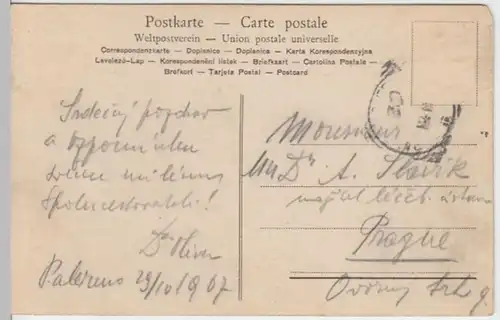 Postkarte — Carte postale
Weltpostverein — Union postale universelle
Correspondenzkarte — Dopisnice — Dopisnica — Karta Korespondenzyjna
Levelező-Lap — Korespondenční lístek — Briefkaart — Cartolina Postale —
Brefkort — Tarjeta Postal — Postcard
Srdečný pozdrav
a vzpomínku
svému milému
Spolucestovateli!
Palermo 29/10 1907
Monsieur
MUDr A. Slavík
majitel léčeb. ústavu
Prague
Ovocný trh 9.